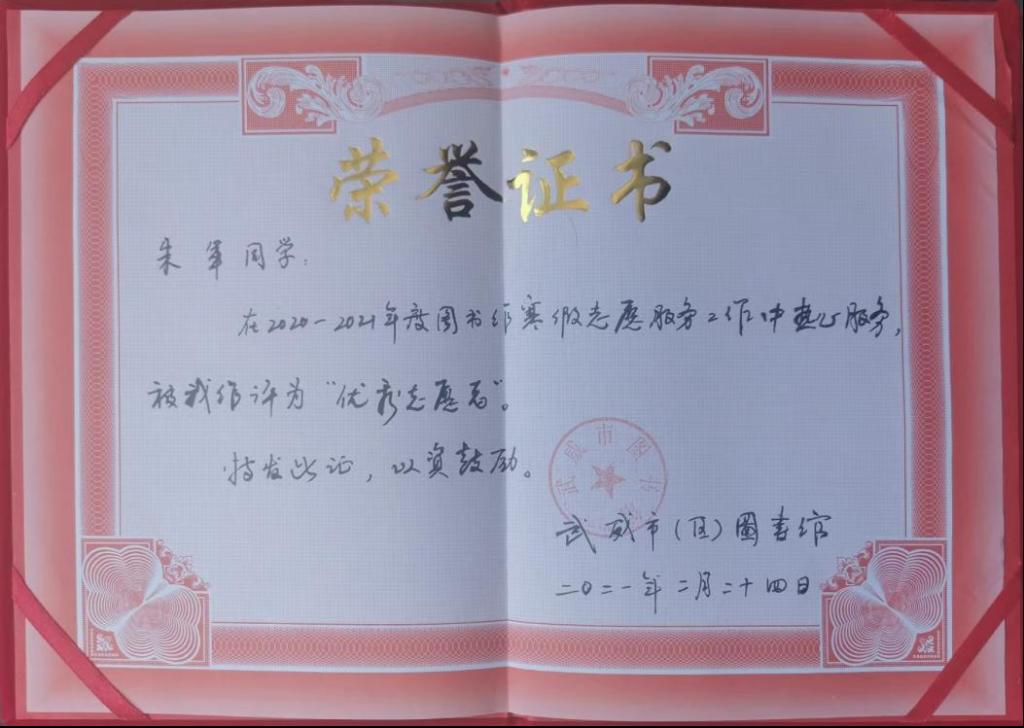 荣誉证书
朱军同学:
在2020-2021年度图书馆寒假志愿服务工作中热心服务,
被我馆评为"优秀志愿者"。
特发此证,以资鼓励。
武威市图书
武威市(区)圖書館
二〇二一年二月二十四日